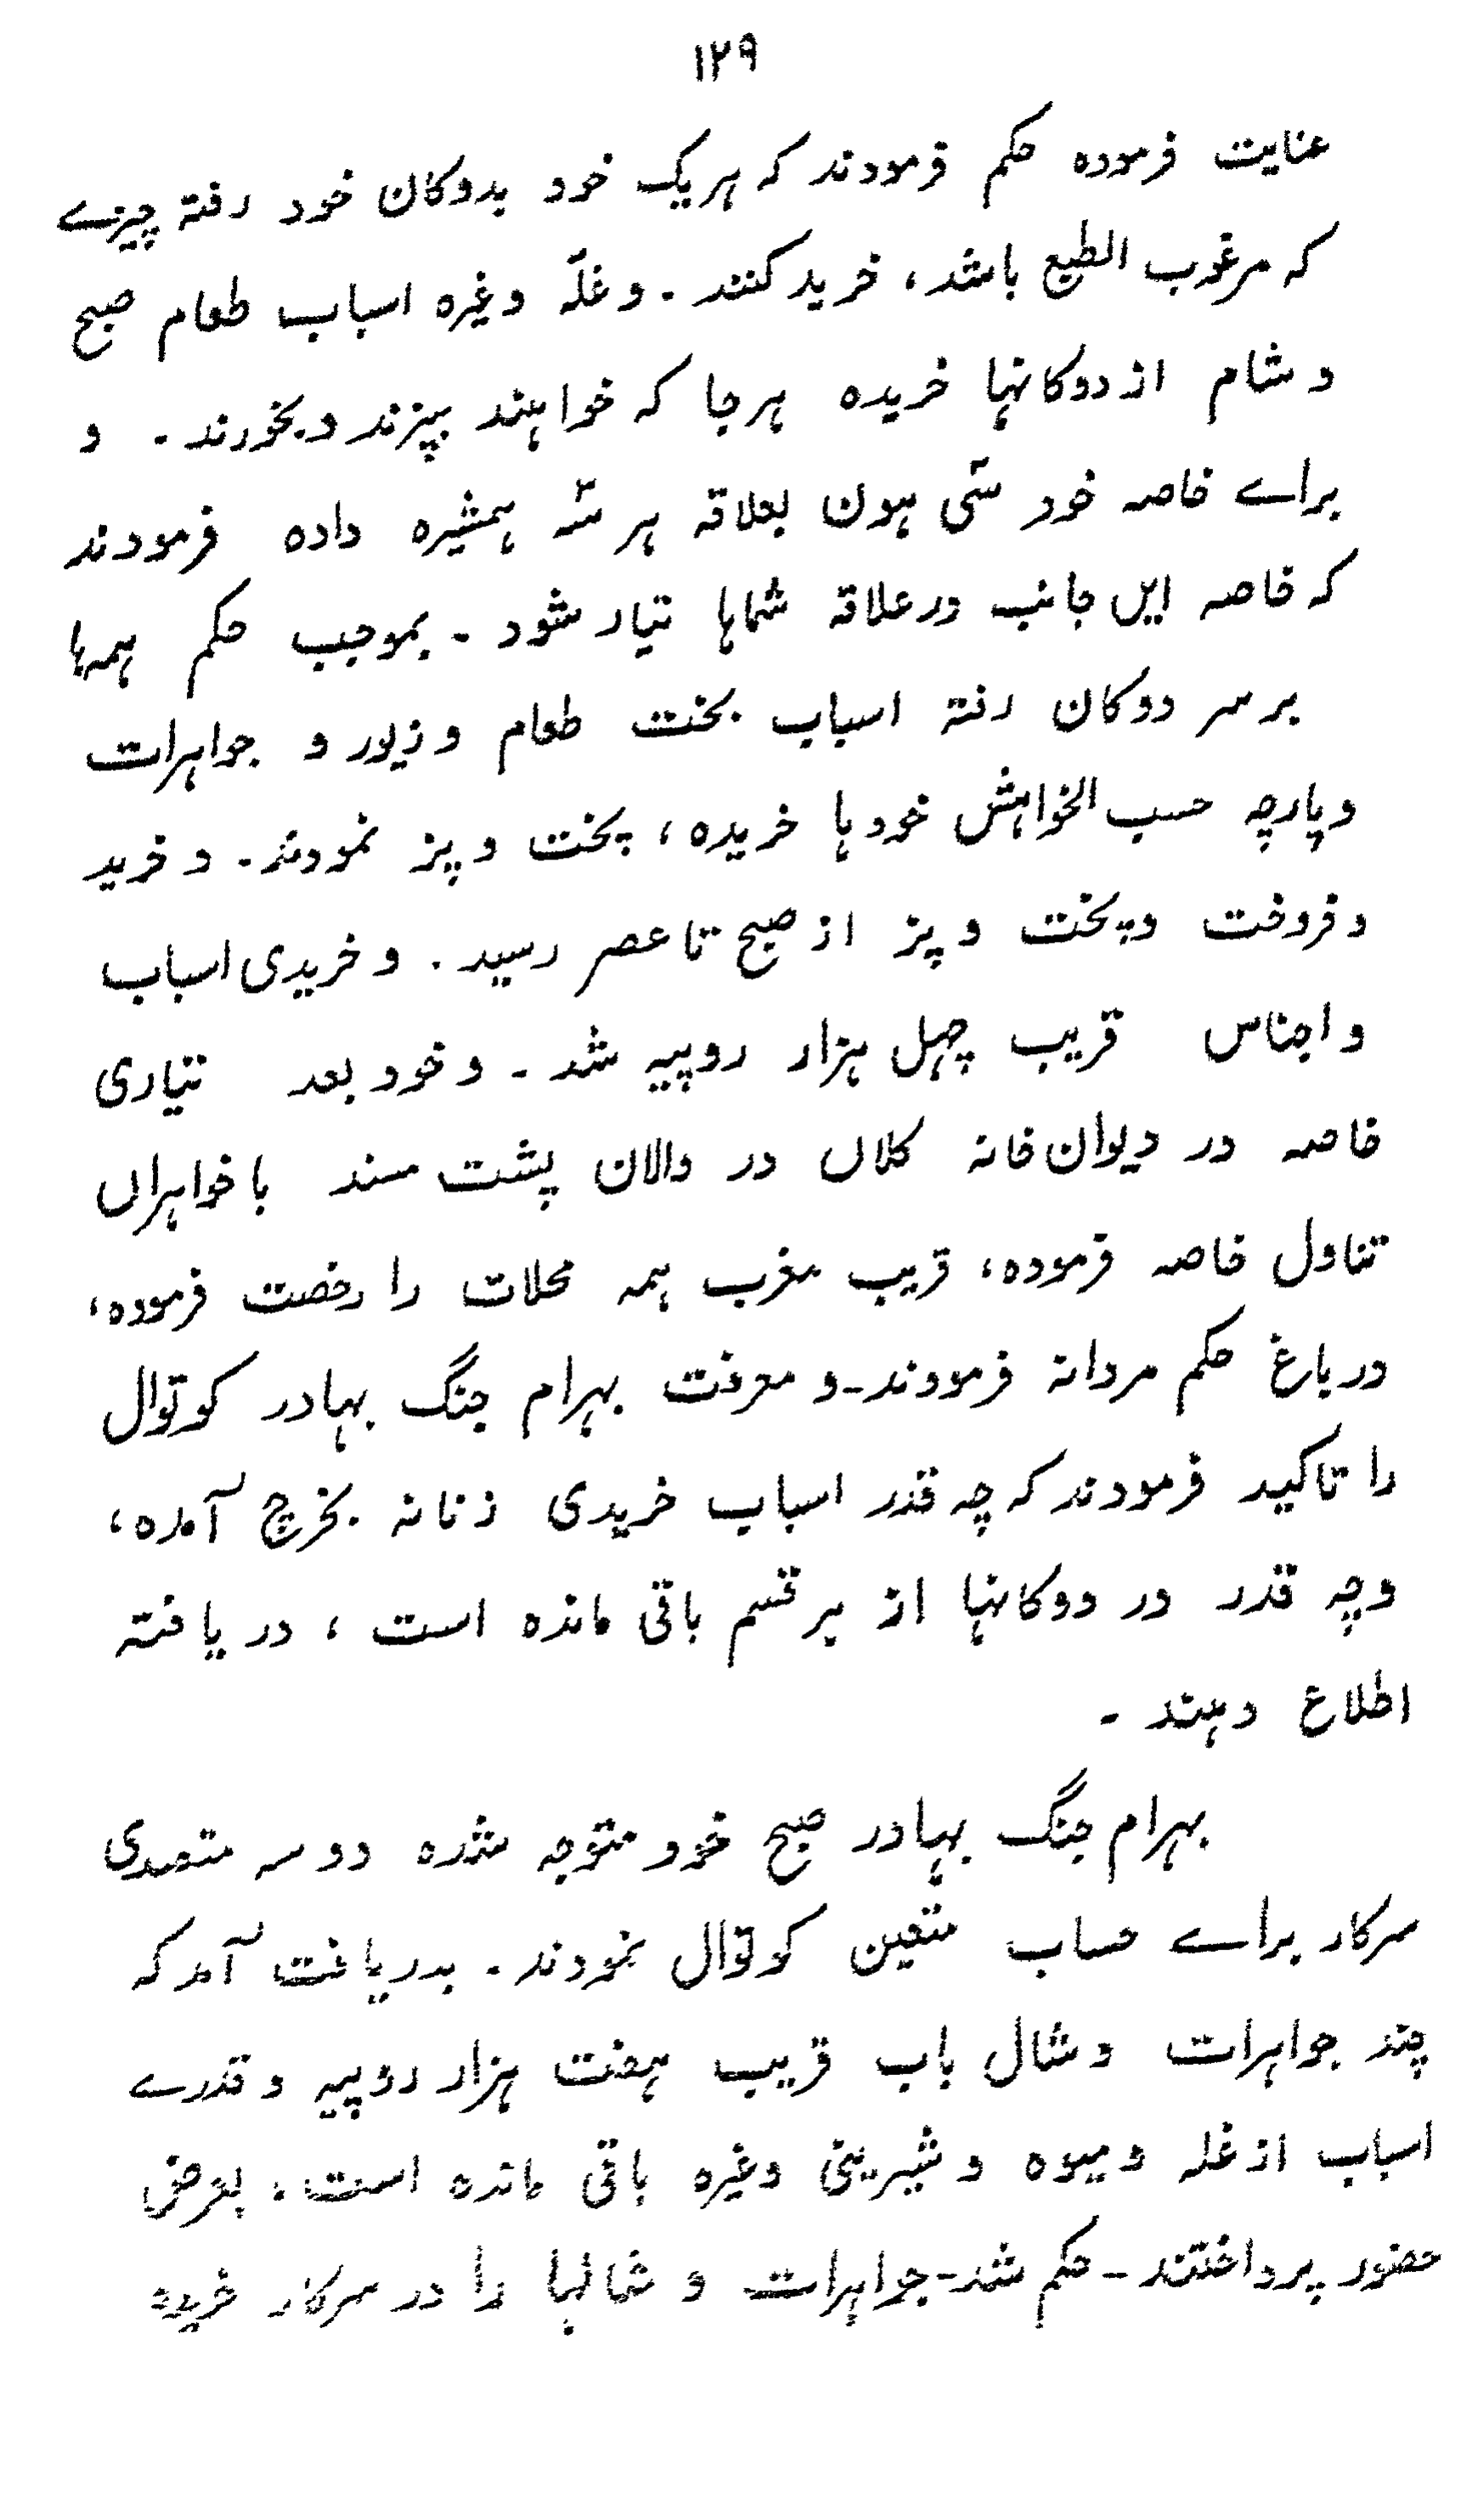 ۱۲۹
عنایت فرموده حکم فرمودند که ہریک خود بدوکان خود رفتہ چیزے
کہ مرغوب الطبع باشد، خرید کنند ۔ و غلّہ وغیرہ اسباب طعام صبح
و شام از دوکانہا خریدہ ہرجا کہ خواہند بپزند و بخورند ۔ و
براے خاصہ خود سی ہون بعلاقہ ہر سہ ہمشیرہ دادہ فرمودند
کہ خاصہ ایں جانب در علاقہ شماہا تیار شود ۔ بموجب حکم ہمہا
بر سر دوکان رفتہ اسباب بخت طعام و زیور و جواہرات
و پارچہ حسب الخواہش خودہا خریدہ، پخت و پز نمودند ۔ و خرید
و فروخت و پخت و پز از صبح تا عصر رسید ۔ و خریدی اسباب
و اجناس قریب چہل ہزار روپیہ شد ۔ و خود بعد تیاری
خاصہ در دیوان خانہ کلاں در والان پشت مسند با خواہراں
تناول خاصہ فرمودہ، قریب مغرب ہمہ محلات را رخصت فرمودہ،
در باغ حکم مردانہ فرمودند ۔ و معرفت بہرام جنگ بہادر کوتوال
را تاکید فرمودند کہ چہ قدر اسباب خریدی زنانہ بخرچ آمدہ،
و چہ قدر در دوکانہا از ہر قسم باقی ماندہ است، دریافتہ
اطلاع دہند ۔
بہرام جنگ بہادر صبح خود متوجہ شدہ دو سہ متصدی
سرکار براے حساب متعین کوتوال نمودند ۔ بدریافت آمد کہ
چند جواہرات و شال باب قریب ہفت ہزار روپیہ و قدرے
اسباب از غلہ و میوہ و شیرینی وغیرہ باقی ماندہ است، بعرض
حضور پرداختند ۔ حکم شد ۔ جواہرات و شالہا را در سرکار خریدہ